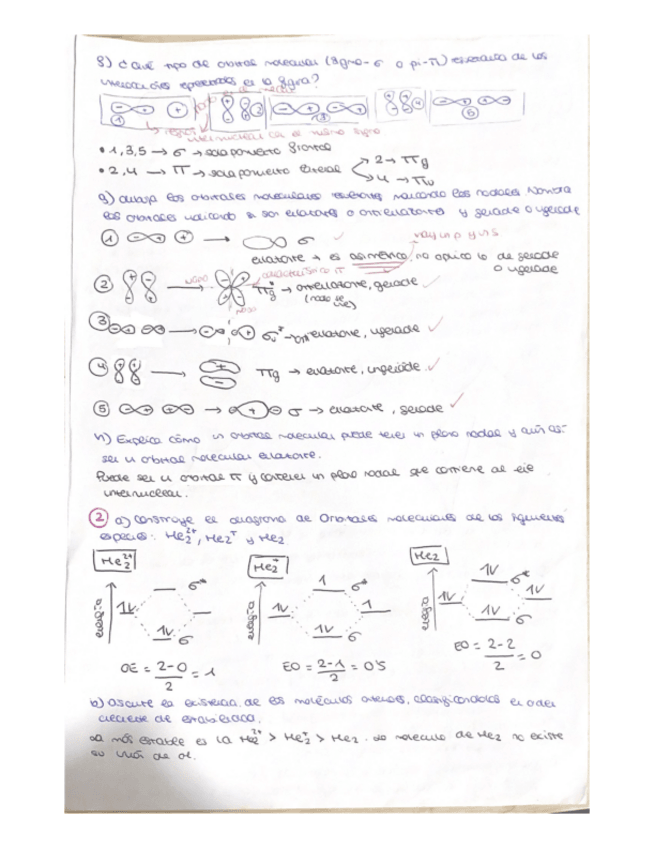 g) ¿Qué tipo de orbital molecular (sigma-σ o pi-π) resultaría de las
interacciones de la figura?
1
3
5
internuclear el mismo signo
• 1,3,5 → σ → solapamiento frontal
• 2,4 → π → solapamiento lateral
2 → πg
4 → πu
g) dibuja los orbitales moleculares indicando los nodales. Nombra
los orbitales indicando si son enlazantes o antienlazantes y gerade o ungerade
① → σ
enlazante + es asimétrico, no aplica lo de gerade
o ungerade
② → πg* → antienlazante, gerade
nodo
característico π
nodo
③ → σu* → antienlazante, ungerade
④ → πg → enlazante, ungerade
⑤ → σ → enlazante, gerade
h) Explica cómo un orbital molecular puede tener un plano nodal y aún así
ser un orbital molecular enlazante.
Puede ser un orbital π y contener un plano nodal que contiene al eje
internuclear.
② a) Construye el diagrama de Orbitales moleculares de las siguientes
especies: He₂²⁺, He₂⁺ y He₂
He₂²⁺
He₂⁺
He₂
energía
σ*
1V
σ
energía
1
σ*
1V
1
1V
σ
energía
1V
σ*
1V
1V
1V
σ
OE = 2-0/2 = 1
EO = 2-1/2 = 0'5
EO = 2-2/2 = 0
b) Discute la existencia de las moléculas anteriores, clasificándolas en orden
creciente de estabilidad.
La más estable es la He₂²⁺ > He₂⁺ > He₂. La molécula de He₂ no existe